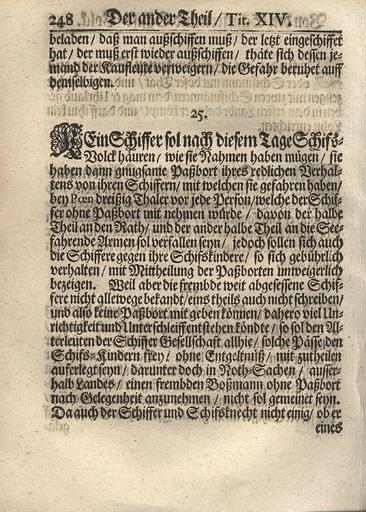 248 Der ander Theil / Tit. XIV.
beladen / daß man außschiffen muß / der letzt eingeschiffet
hat / der muß erst wieder außschiffen / thäte sich dessen je-
mand der Kaufleute verweigern / die Gefahr beruhet auff
demselbigen.
25.
KEin Schiffer sol nach diesem Tage Schifs-
Volck häuren / wie sie Nahmen haben mügen / sie
haben dann gnugsame Paßbort ihres redlichen Verhal-
tens von ihren Schiffern / mit welchen sie gefahren haben /
bey Poen dreißig Thaler vor jede Person / welche der Schif-
fer ohne Paßbort mit nehmen würde / davon der halbe
Theil an den Rath / und der ander halbe Theil an die See-
fahrende Armen sol verfallen seyn / jedoch sollen sich auch
die Schiffere gegen ihre Schifskindere / so sich gebührlich
verhalten / mit Mittheilung der Paßborten unweigerlich
bezeigen. Weil aber die frembde weit abgesessene Schif-
fere nicht allewege bekandt / eins theils auch nicht schreiben /
und also keine Paßbort mit geben können / dahero viel Un-
richtigkeit und Unterschleiff entstehen köndte / so sol den Al-
terleuten der Schiffer Gesellschaft allhie / solche Pässe den
Schifs-Kindern frey / ohne Entgeltnüß / mit zutheilen
aufferlegt seyn / darunter doch in Noth-Sachen / ausser-
halb Landes / einen frembden Boßmann ohne Paßbort
nach Gelegenheit anzunehmen / nicht sol gemeinet seyn.
Da auch der Schiffer und Schifsknecht nicht einig / ob er
eines